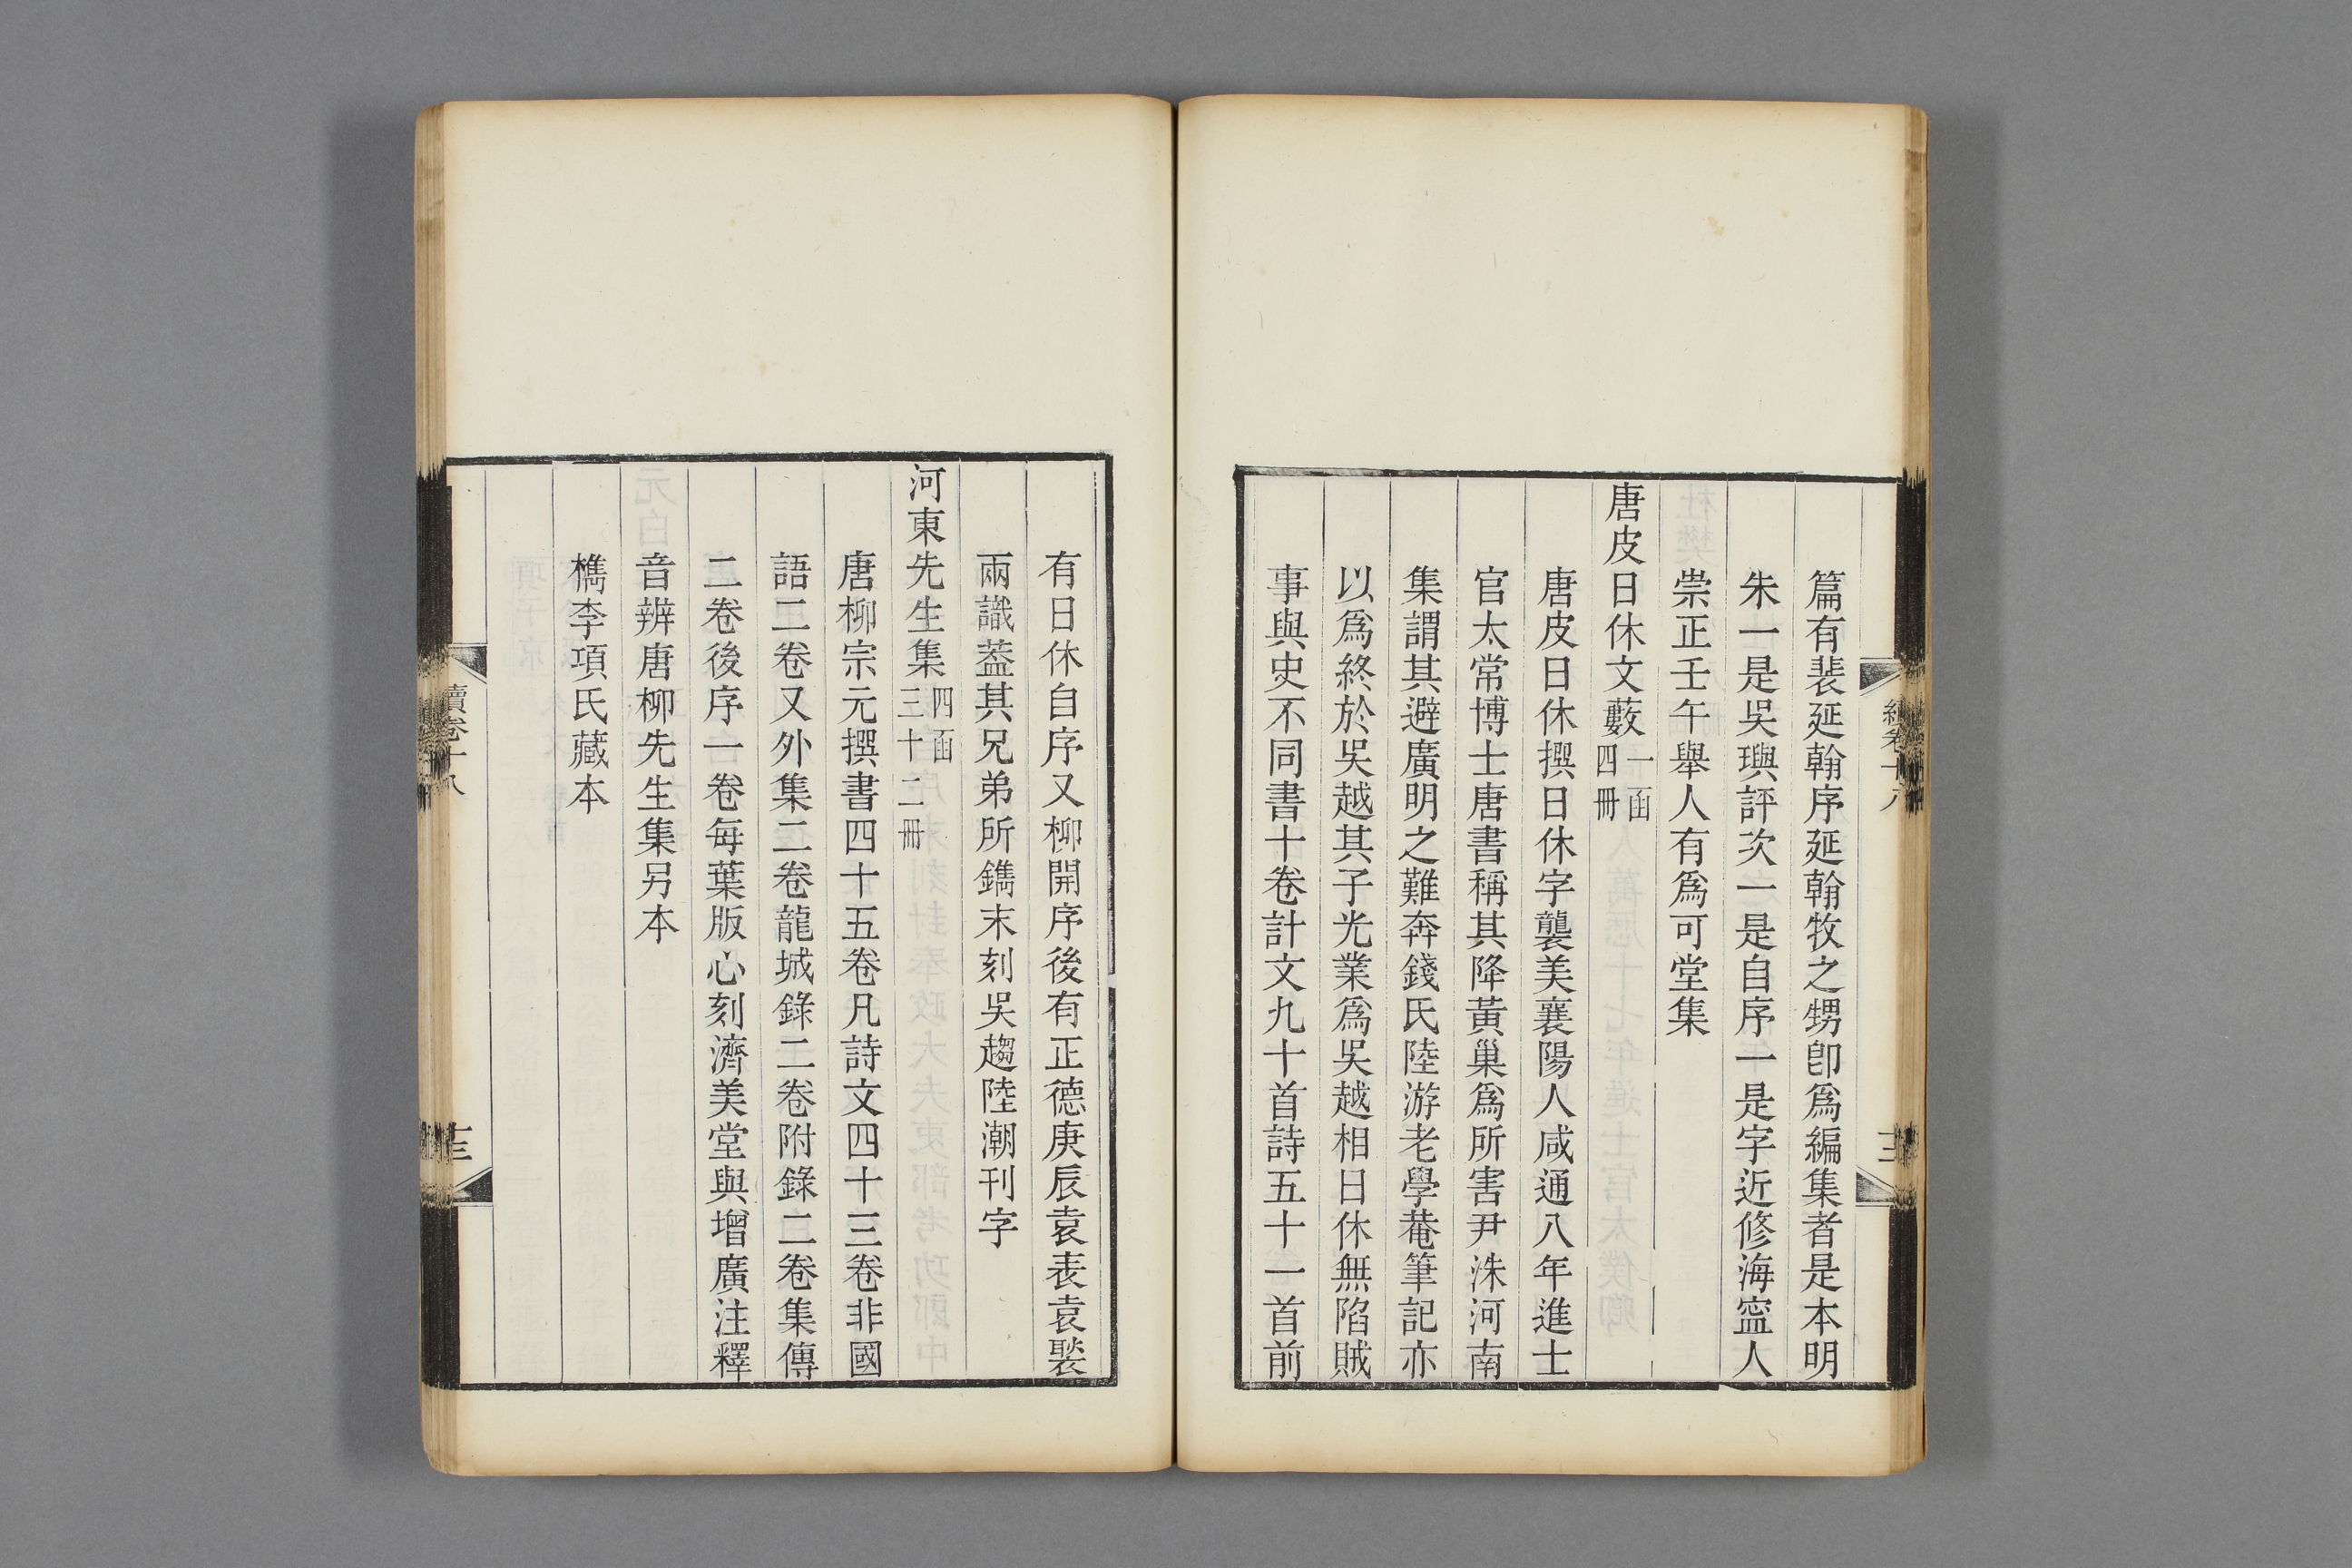 篇有裴延翰序延翰牧之甥卽爲編集者是本明
朱一是吳璵評次一是自序一是字近修海寍人
崇正壬午舉人有爲可堂集
唐皮日休文藪一函四冊
唐皮日休撰日休字襲美襄陽人咸通八年進士
官太常博士唐書稱其降黃巢爲所害尹洙河南
集謂其避廣明之難奔錢氏陸游老學菴筆記亦
以爲終於吳越其子光業爲吳越相日休無陷賊
事與史不同書十卷計文九十首詩五十一首前
有日休自序又柳開序後有正德庚辰袁表袁褧
兩識葢其兄弟所鐫末刻吳趨陸潮刊字
河東先生集四函三十二冊
唐柳宗元撰書四十五卷凡詩文四十三卷非國
語二卷又外集二卷龍城錄二卷附錄二卷集傳
二卷後序一卷每葉版心刻濟美堂與增廣注釋
音辨唐柳先生集另本
檇李項氏藏本
續卷十八